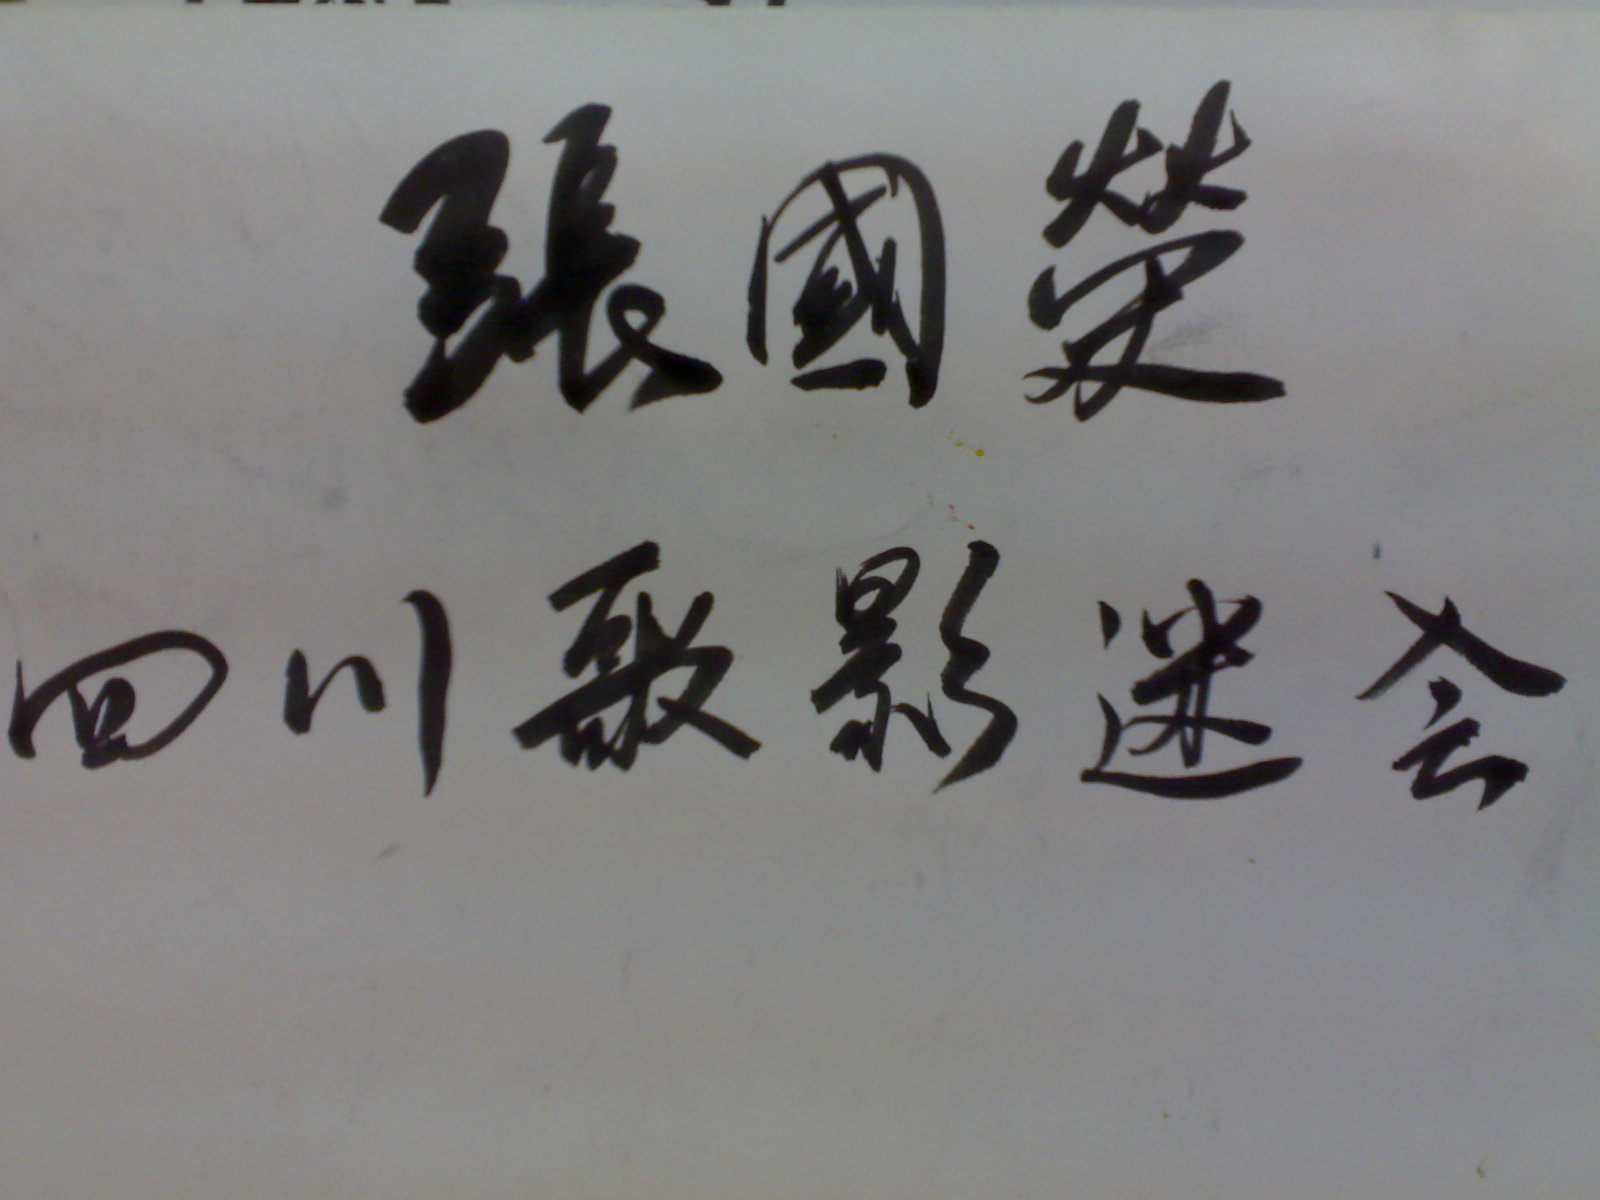 張國榮
四川歌影迷会